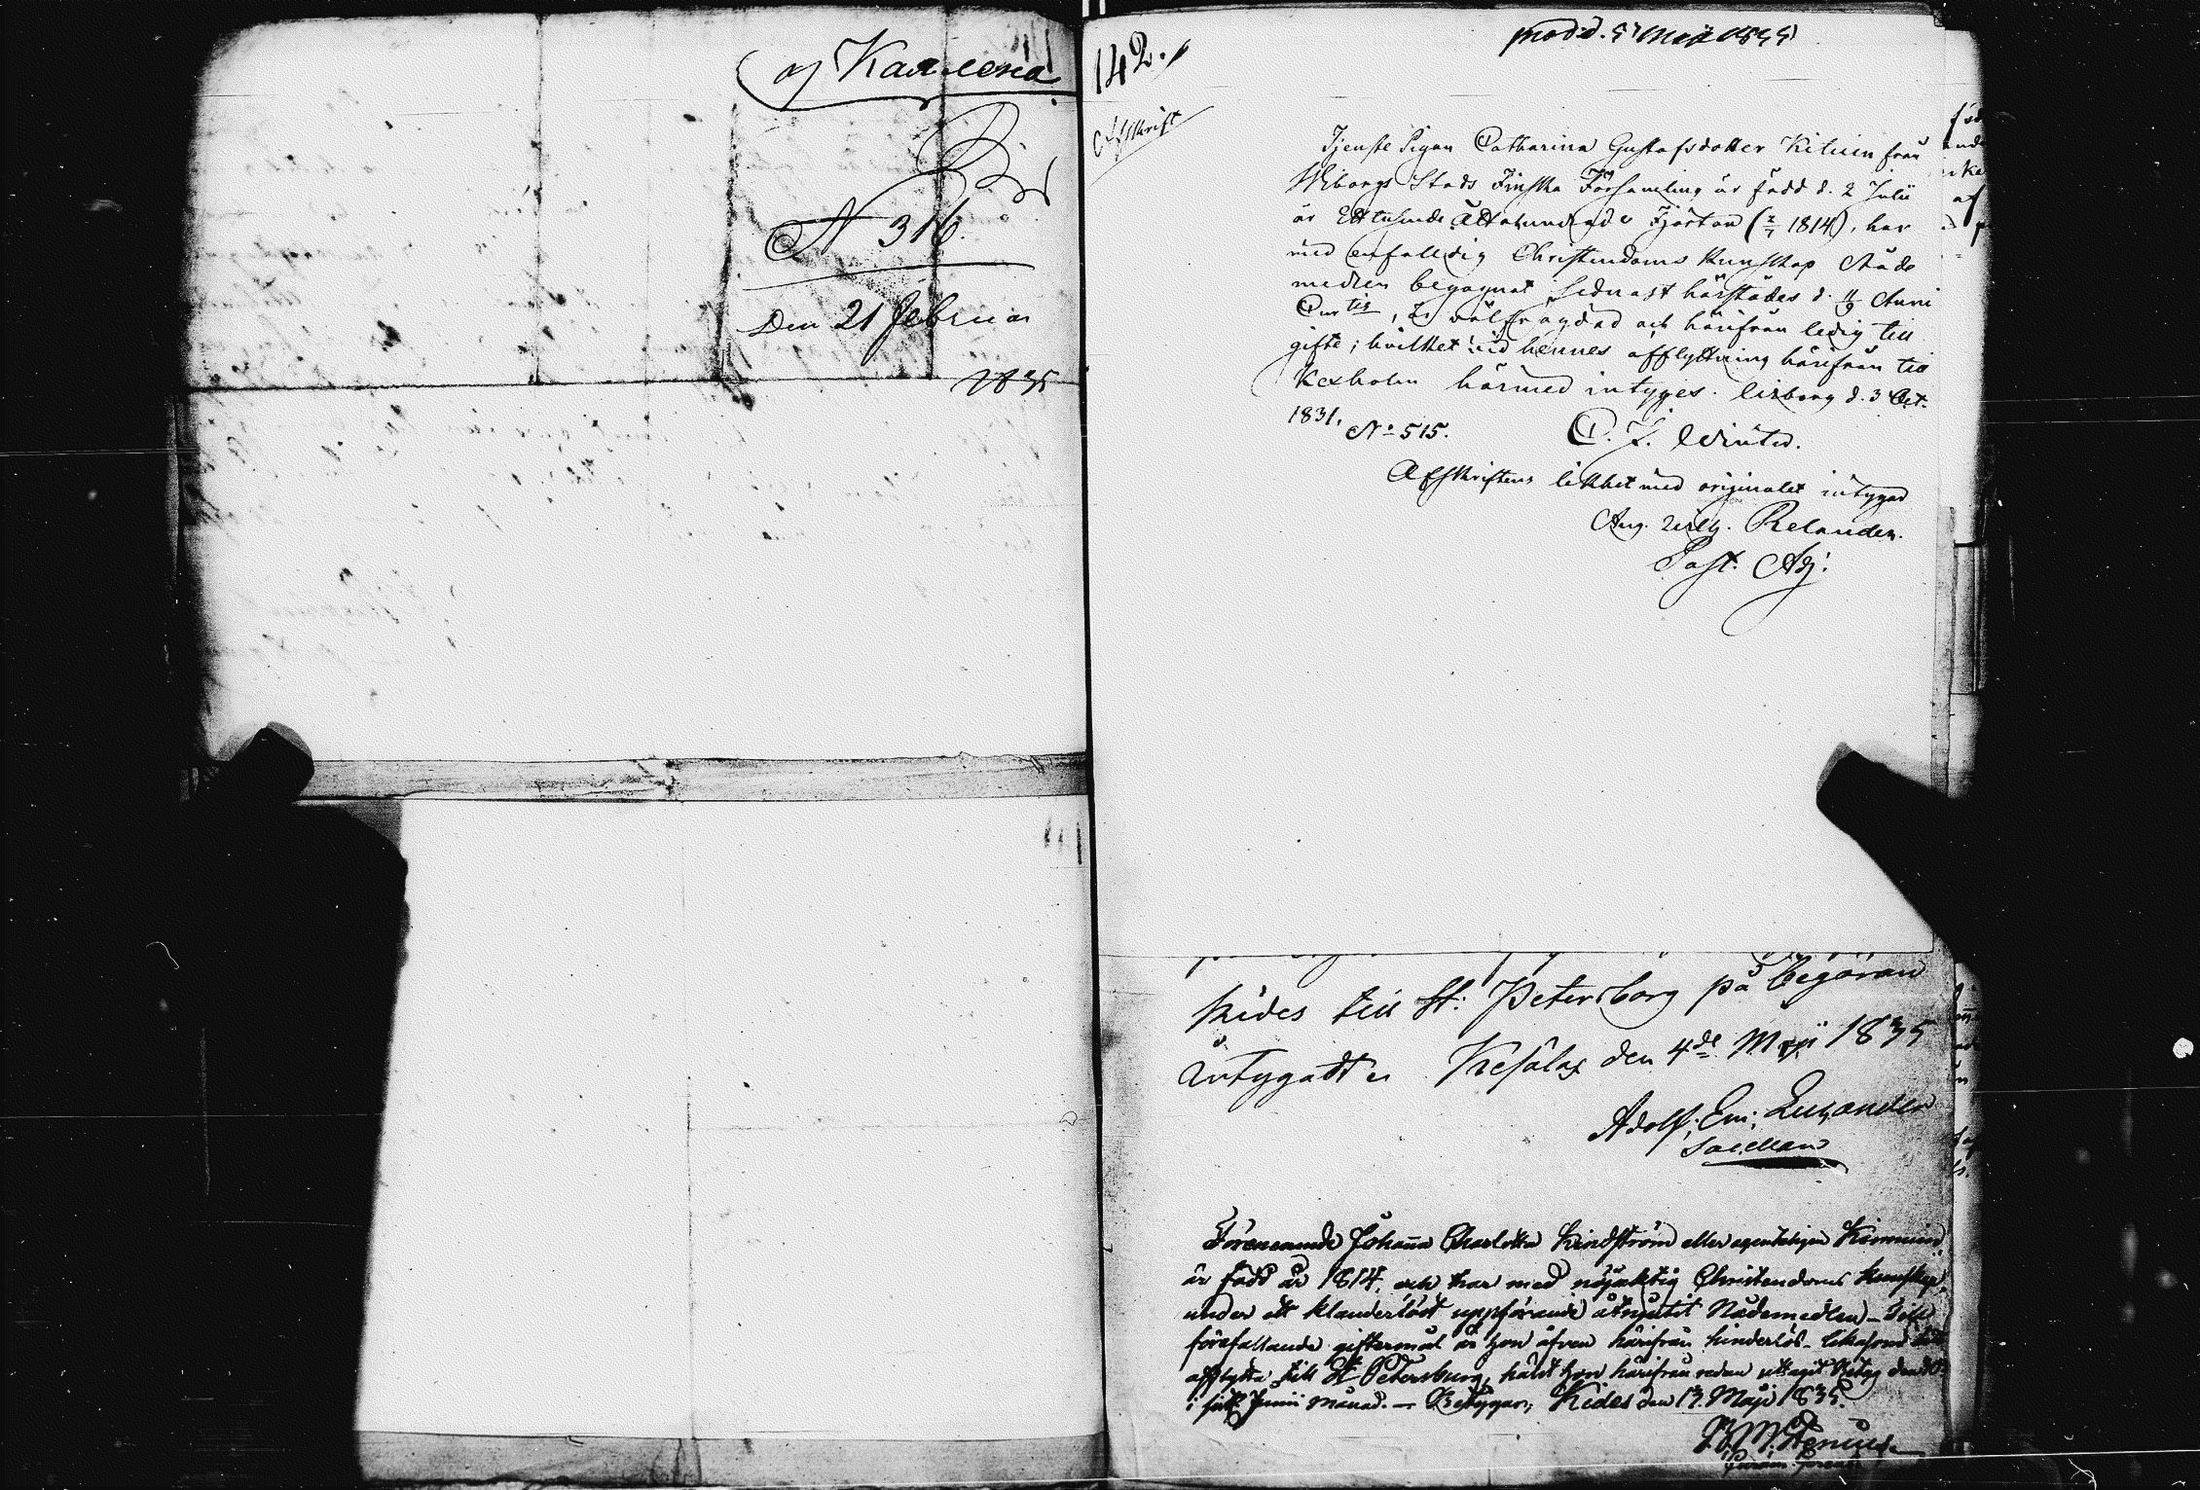 af Каялеха
N 316.
Den 21 Februar
1835
142.
Afskrift
prod. d. 5 Maji 1835
Tjenste Pigan Catharina Gustafsdotter Kitinen från
Wiborgs Stads Finska Församling är född d. 2 Julii
år Ett tusende Åttahundrade Fjorton (2/7 1814), har
med enfalldig Christendoms Kunskap Nåde
medlen begagnat sednast härstädes d. 11/9 Anni
Curtis, är välfrägdad och härifrån ledig till
gifte; hvilket vid hennes afflyttning härifrån till
Kexholm härmed intyges. Wiborg d. 3 Oct.
1831.
No 515.
C. F. Winter.
Afskriftens likhet med originalet intygad
Aug. Wilh. Relander.
Past. Adj.
Kides till St: Petersborg på begäran
intygadt. Kesälax den 4de Maji 1835
Adolf; Em; Lucander
Sacellan
Förenemnde Johanna Charlotta Lindström eller egenteligen Kinnunin
är född år 1814, och har med nöjaktig Christendoms kunskap,
under ett klanderlöst uppförande åtnjutit Nådemedlen - Till
förefallande giftermål är hon äfven härifrån hinderlös - likasom att
afflytta till St Petersburg, hälst hon härifrån redan uttagit Betyg den
i sistl. Junii månad. - Betygar, Kides den 13 Maji 1835.